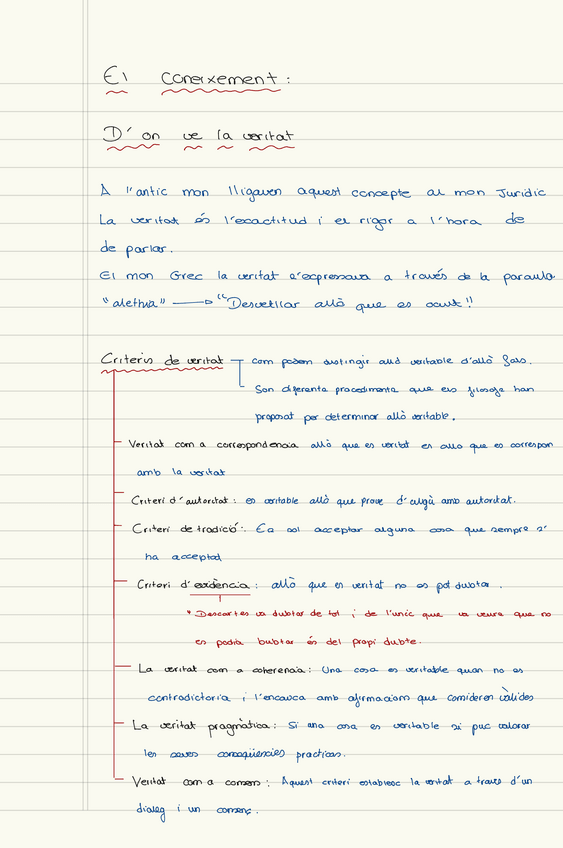 El Coneixement:
D'on ve la veritat
A l'antic mon lligaven aquest concepte al mon Juridic
La veritat és l'exactitud i el rigor a l'hora de
de parlar.
El mon Grec la veritat s'expressava a través de la paraula
"alethia" → "Desvetllar allò que es ocult"
Criteris de veritat com podem distingir allò veritable d'allò fals.
Son diferents procediments que els filosofs han
proposat per determinar allò veritable.
Veritat com a correspondencia allò que es veritat es allo que es correspon
amb la veritat
Criteri d'autoritat: es veritable allò que prove d'algú amb autoritat.
Criteri de tradició: Es sol acceptar alguna cosa que sempre s'
ha acceptat
Criteri d'evidència: allò que es veritat no es pot dubtar.
* Descartes va dubtar de tot i de l'unic que va veure que no
es podia bubtar és del propi dubte.
La veritat com a coherencia: Una cosa es veritable quan no es
contradictoria i l'encaixa amb afirmacions que considerem vàlides
La veritat pragmàtica: Si una cosa es veritable si puc valorar
les seves conseqüencies practicas.
Veritat com a consens: Aquest criteri estableix la veritat a traves d'un
dialeg i un consens.